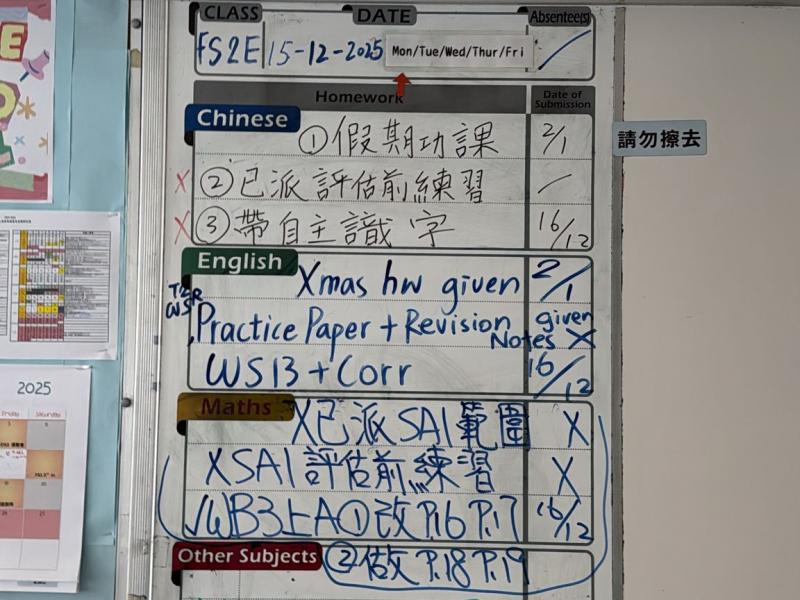 CLASS DATE Absentee(s)
FS2E 15-12-2025 Mon/Tue/Wed/Thur/Fri
Homework Date of Submission
Chinese
① 假期功課 2/1
X ② 已派評估前練習
X ③ 帶自主識字 16/12
請勿擦去
English
Xmas hw given 2/1
Practice Paper + Revision Notes given X
WS13 + Corr 16/12
Maths
X已派SA1範圍 X
XSA1評估前練習 X
√WB3上A①改P.16 P.17 16/12
Other Subjects
②做P.18 P.19
2025
Friday Saturday